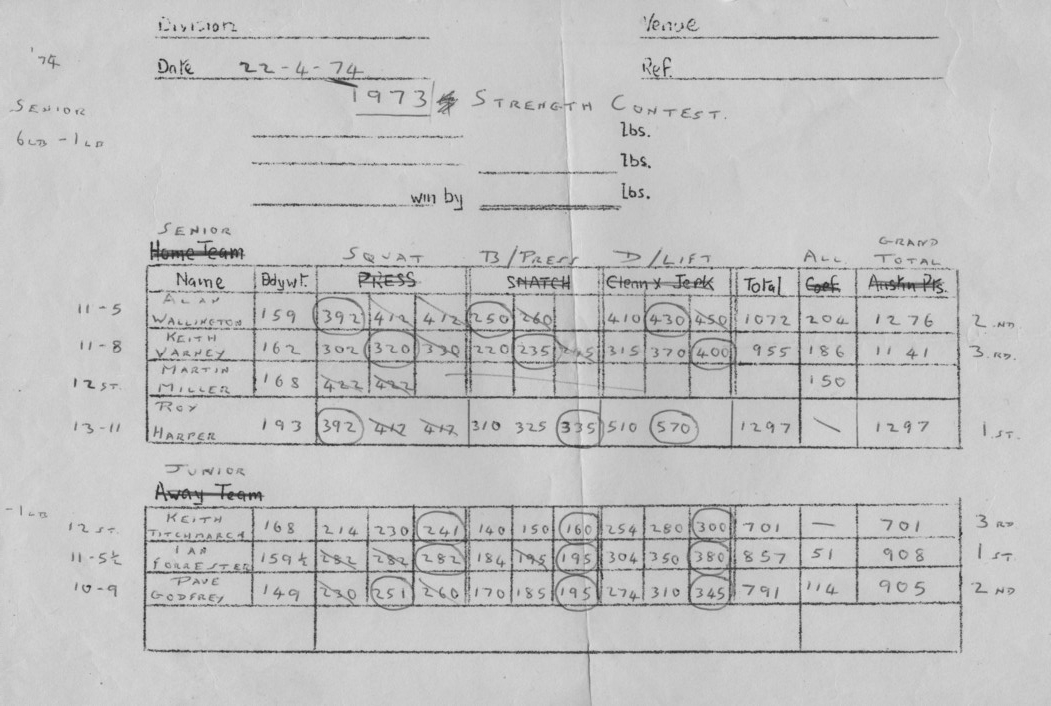 Division Venue
'74 Date 22-4-74 Ref.
1973 STRENGTH CONTEST.
SENIOR
6LB -1LB lbs.
lbs.
win by lbs.
SENIOR GRAND
Home Team SQUAT B/PRESS D/LIFT ALL. TOTAL
Name Bdywt. PRESS SNATCH Clean & Jerk Total Coef. Austin Pts.
11-5 ALAN WALLINGTON 159 392 412 412 250 260 410 430 450 1072 204 1276 2.ND.
11-8 KEITH VARNEY 162 302 320 330 220 235 245 315 370 400 955 186 1141 3.RD.
12ST. MARTIN MILLER 168 422 422 150
13-11 ROY HARPER 193 392 412 412 310 325 335 510 570 1297 — 1297 1.ST.
JUNIOR
Away Team
-1LB
12ST. KEITH TITCHMARCH 168 214 230 241 140 150 160 254 280 300 701 — 701 3RD
11-5½ IAN FORRESTER 159½ 282 282 282 184 195 195 304 350 380 857 51 908 1ST.
10-9 DAVE GODFREY 149 230 251 260 170 185 195 274 310 345 791 114 905 2ND